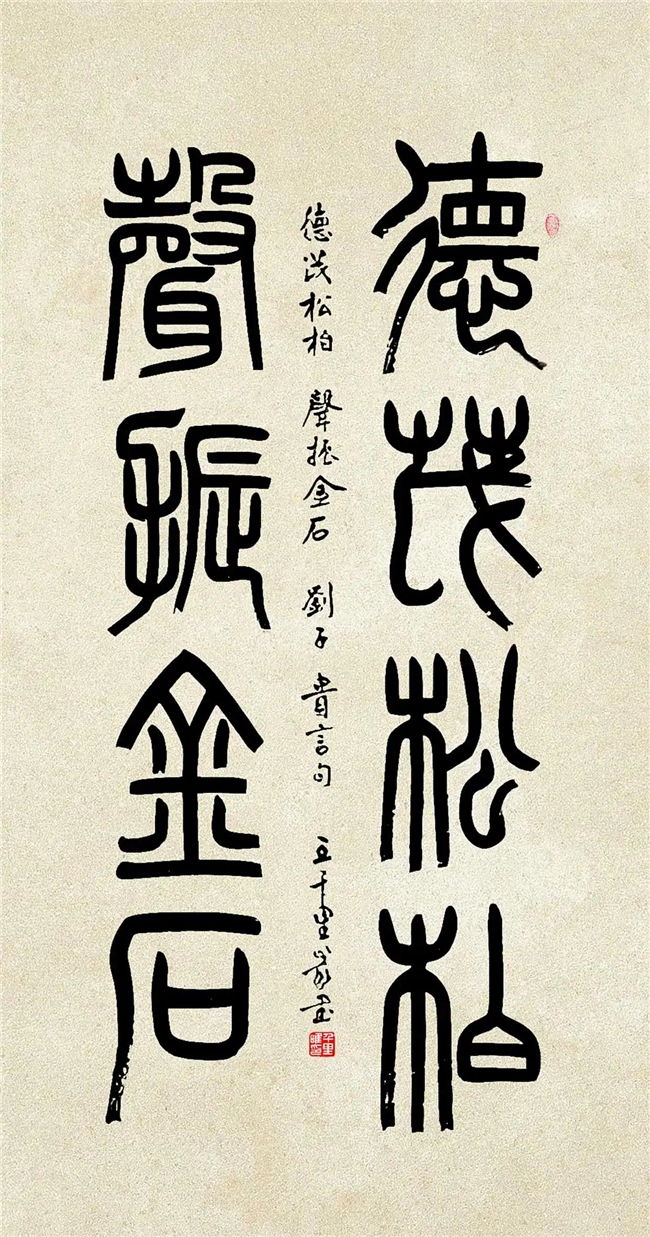 德茂松柏
德茂松柏 聲振金石 劉子 貴言句 千里篆書
千里
聲振金石